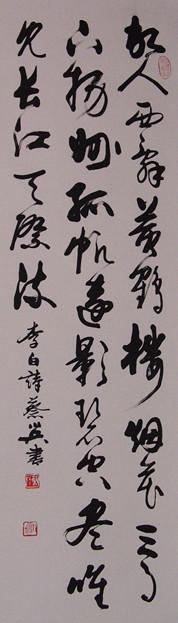 故人西辞黄鹤楼烟花三月
下扬州孤帆远影碧空尽唯
见长江天际流
李白詩蔡英書